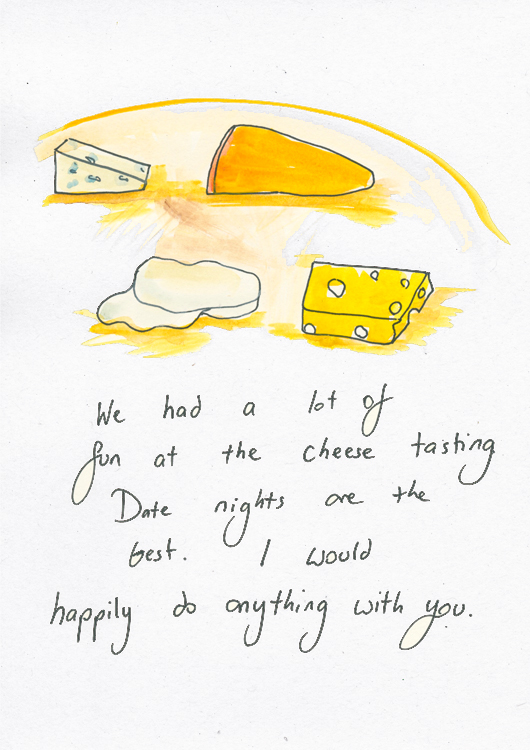 We had a lot of
fun at the cheese tasting
Date nights are the
best. I would
happily do anything with you.